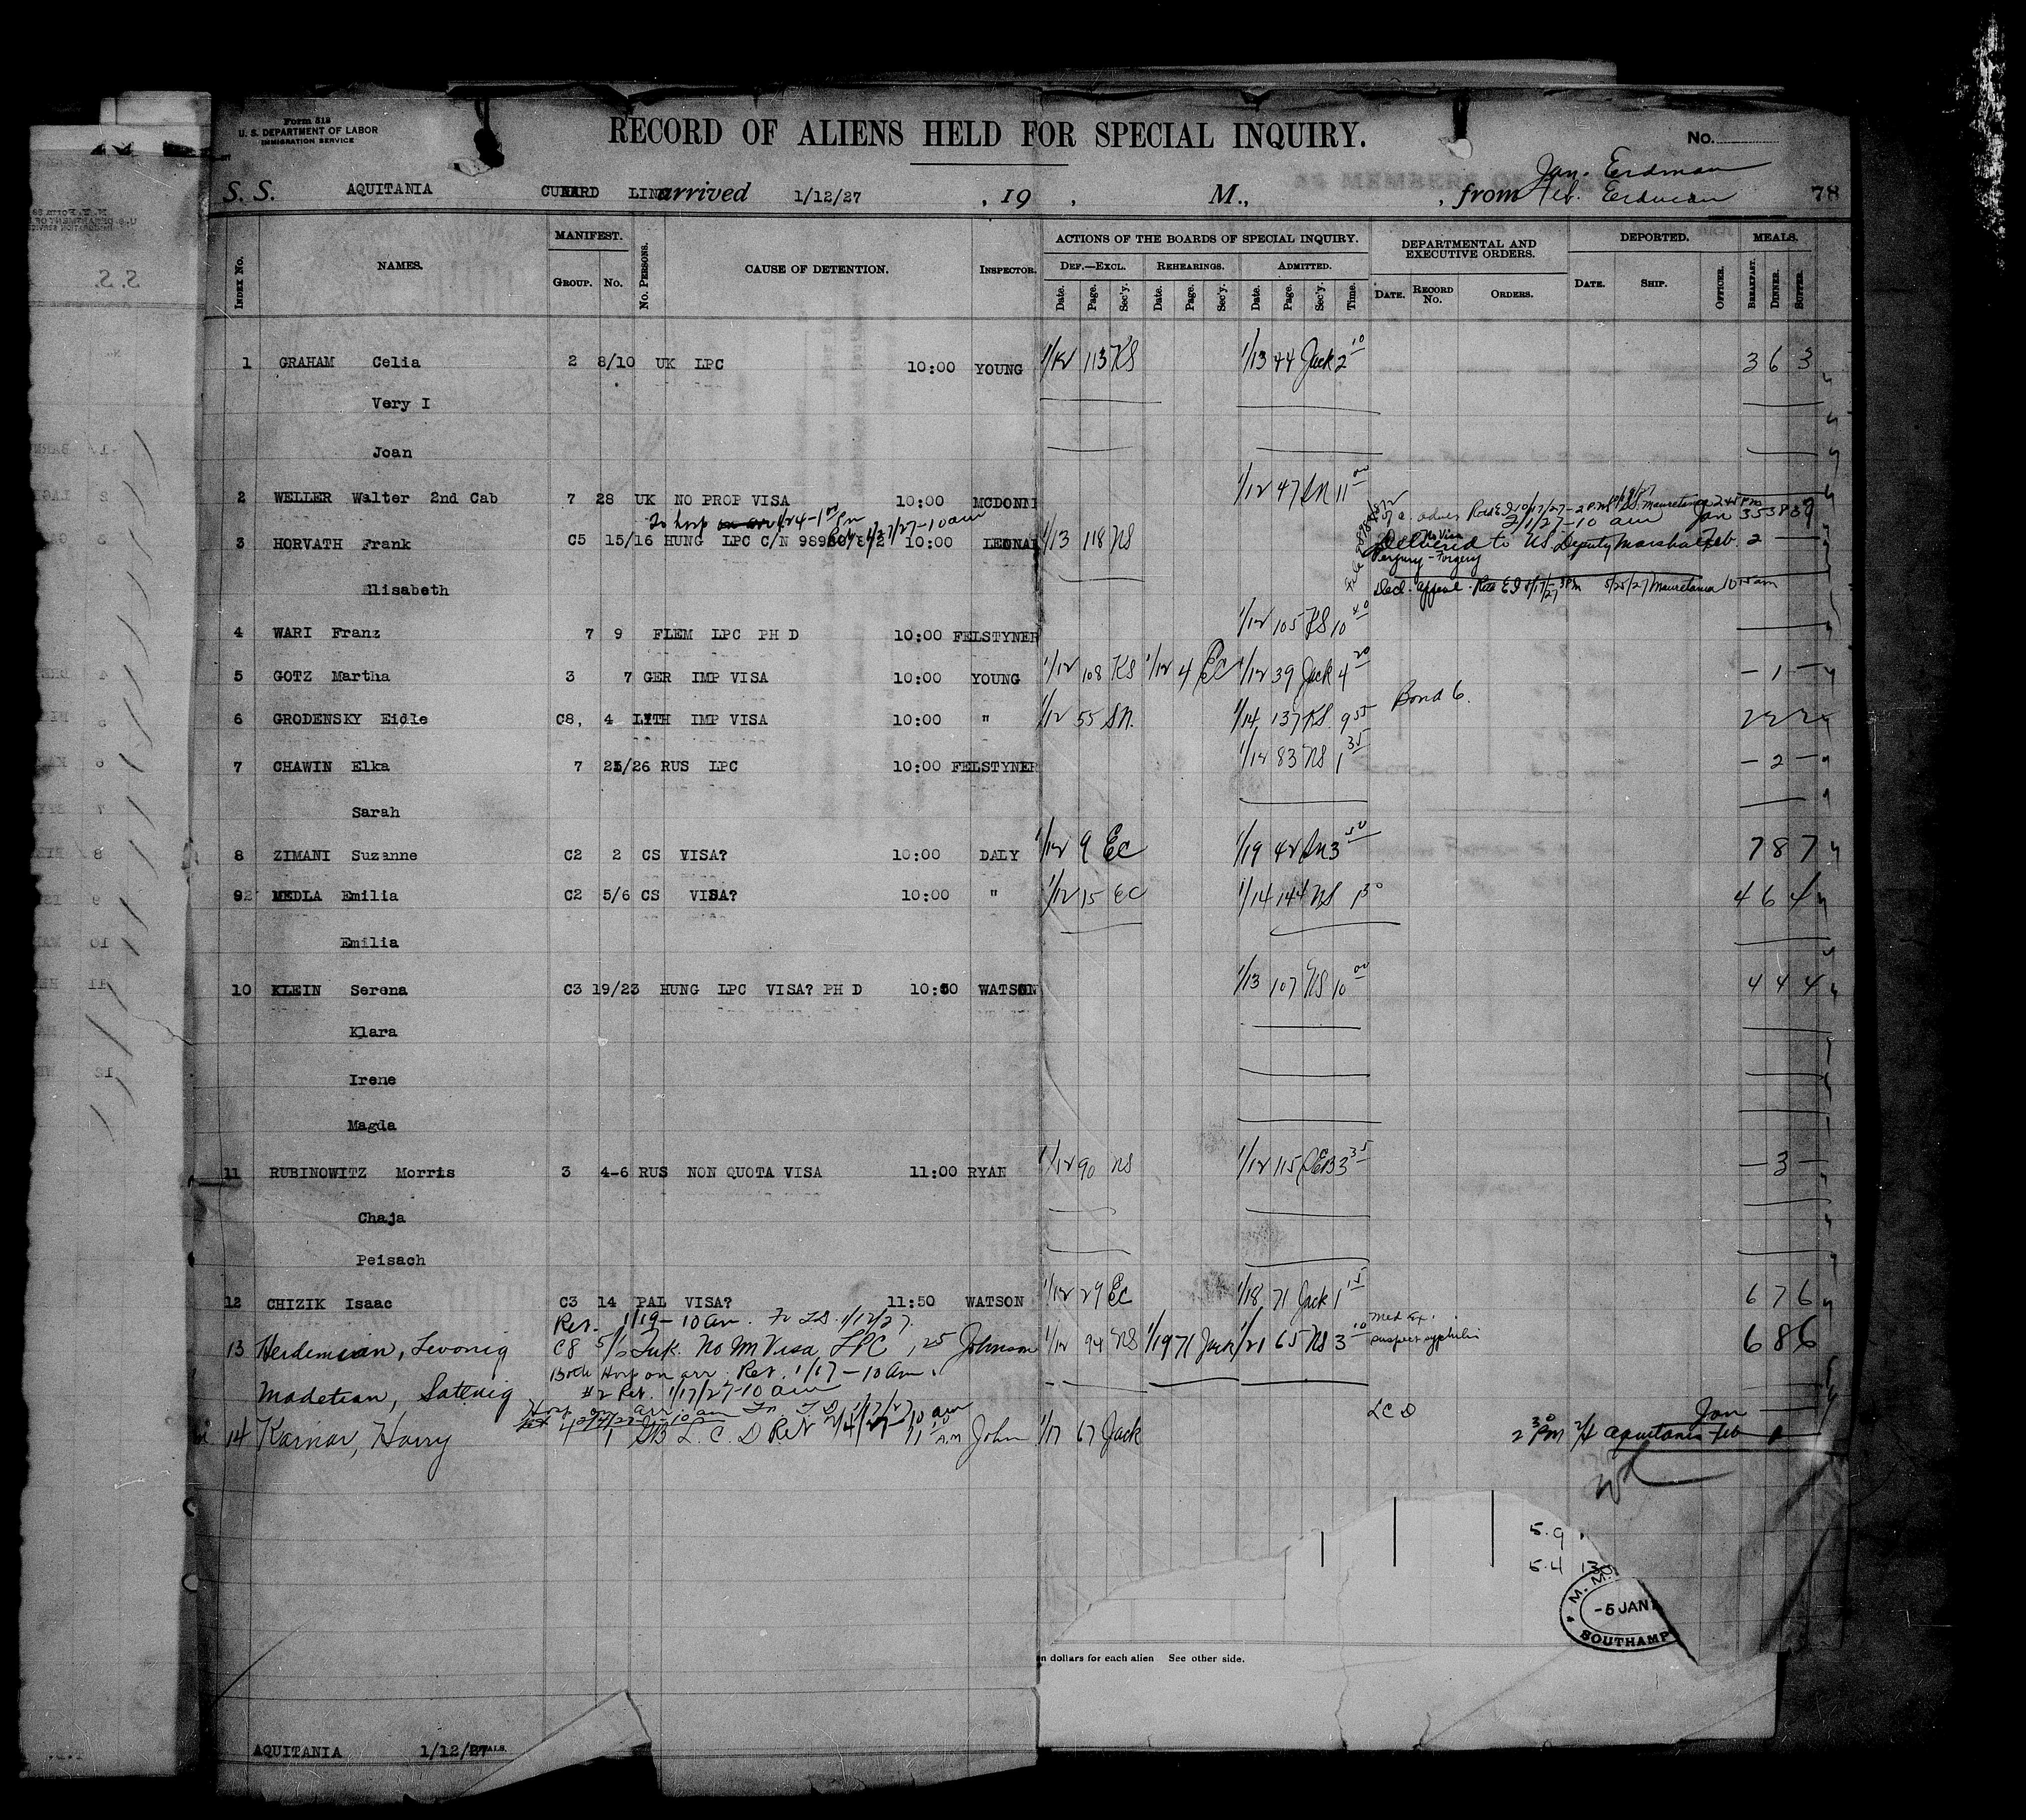 Form 518
U. S. DEPARTMENT OF LABOR
IMMIGRATION SERVICE
RECORD OF ALIENS HELD FOR SPECIAL INQUIRY.
No.
Jan. Erdman
S. S. AQUITANIA CUNARD LINE arrived 1/12/27 , 19 , M., , from Feb. Erdman 78
Index No. NAMES. MANIFEST. GROUP. No. No. Persons. CAUSE OF DETENTION. INSPECTOR. ACTIONS OF THE BOARDS OF SPECIAL INQUIRY. DEPARTMENTAL AND EXECUTIVE ORDERS. DEPORTED. MEALS.
DEF.—EXCL. REHEARINGS. ADMITTED.
Date. Page. Sec'y. Date. Page. Sec'y. Date. Page. Sec'y. Time. DATE. RECORD No. ORDERS. DATE. SHIP. OFFICER. BREAKFAST. DINNER. SUPPER.
1 GRAHAM Celia 2 8/10 UK LPC 10:00 YOUNG 1/12 113 KS 1/13 44 Jack 2 10 3 6 3
Very I
Joan
2 WELLER Walter 2nd Cab 7 28 UK NO PROP VISA 10:00 MCDONN 1/12 47 SN 11 00
3 HORVATH Frank C5 15/16 HUNG LPC C/N 10:00 1/13 118 NS
2/1/27-10 am Jan 35 38 39
Delivered to US Deputy Marshal Feb. 2
Perjury - Forgery
Elisabeth Decl. Appeal 5/25/27 Mauretania 10 15 am
4 WARI Franz 7 9 FLEM LPC PH D 10:00 FELSTYNER 1/12 105 KS 10 40
5 GOTZ Martha 3 7 GER IMP VISA 10:00 YOUNG 1/12 108 KS 1/12 4 EC 1/12 39 Jack 4 20 — 1 —
6 GRODENSKY Eidle C8, 4 LITH IMP VISA 10:00 " 1/12 55 SN. 1/14 137 KS 9 55 Bond 6. 2 2 2
7 CHAWIN Elka 7 25/26 RUS LPC 10:00 FELSTYNER 1/14 83 NS 1 35 — 2 —
Sarah
8 ZIMANI Suzanne C2 2 CS VISA? 10:00 DALY 1/12 9 EC 1/19 42 SN 3 50 7 8 7
9 MEDLA Emilia C2 5/6 CS VISA? 10:00 " 1/12 15 EC 1/14 144 NS 1 30 4 6 4
Emilia
10 KLEIN Serena C3 19/23 HUNG LPC VISA? PH D 10:30 WATSON 1/13 107 NS 10 00 4 4 4
Klara
Irene
Magda
11 RUBINOWITZ Morris 3 4-6 RUS NON QUOTA VISA 11:00 RYAN 1/12 90 NS 1/12 115 3 35 — 3 —
Chaja
Peisach
12 CHIZIK Isaac C3 14 PAL VISA? 11:50 WATSON 1/12 29 EC 1/18 71 Jack 1 15 6 7 6
Ret. 1/19-10 am. 1/12/27.
13 Herdemian, Levonig C8 5/6 Turk. No Im Visa LPC 1 25 Johnson 1/12 94 NS 1/19 71 Jack 1/21 65 NS 3 10 Med Ex. suspect syphilis 6 8 6
Both Hosp on arr. Ret. 1/17-10 am.
Madetian, Satenig #2 Ret. 1/17/27-10 am
Hosp on arr.
14 Karnar, Harry 1 L. C. D Ret 11 10 AM John 1/17 67 Jack LCD 2 30 PM 2/4 Aquitania Jan Feb
5.9
5.4 13
M. M.
-5 JAN
SOUTHAMP
n dollars for each alien See other side.
AQUITANIA 1/12/27